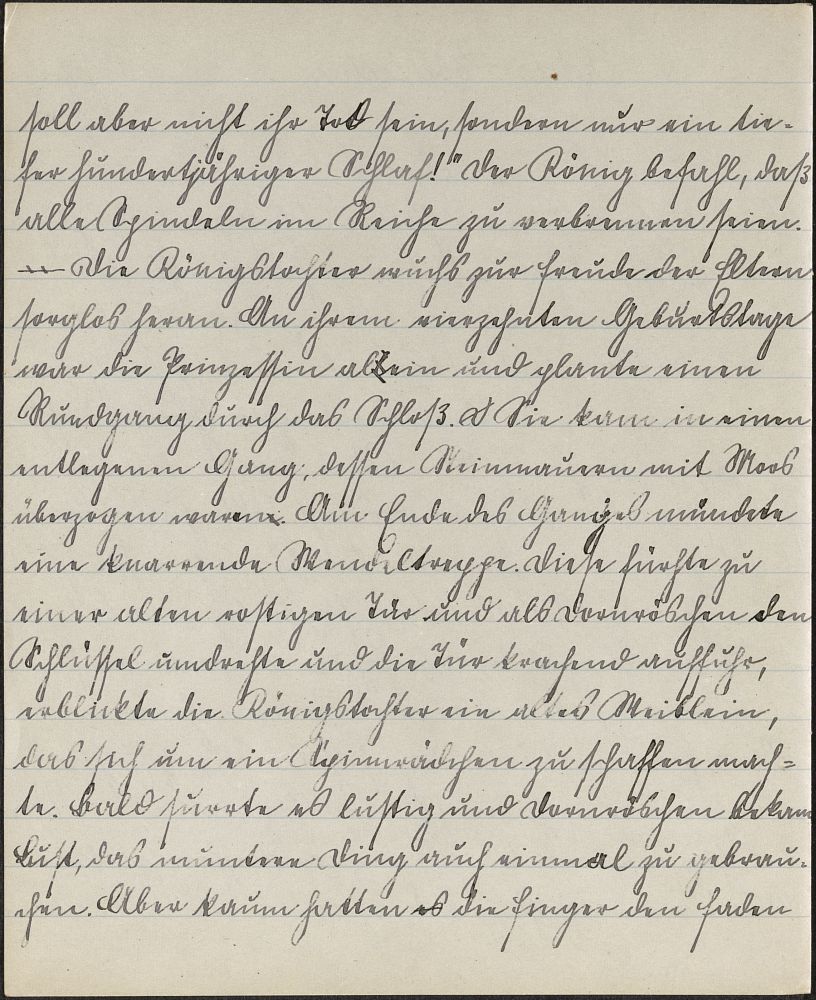 soll aber nicht ihr Tod sein, sondern nur ein tie-
fer hundertjähriger Schlaf!" Der König befahl, daß
alle Spindeln im Reiche zu verbrennen seien.
— Die Königstochter wuchs zur Freude der Eltern
sorglos heran. An ihrem vierzehnten Geburtstage
war die Prinzessin allein und plante einen
Rundgang durch das Schloß. Sie kam in einen
entlegenen Gang, dessen Steinmauern mit Moos
überzogen waren. Am Ende des Ganges mündete
eine knarrende Wendeltreppe. Diese führte zu
einer alten rostigen Tür und als Dornröschen den
Schlüssel umdrehte und die Tür krachend auffuhr,
erblickte die Königstochter ein altes Weiblein,
das sich um ein Spinnrädchen zu schaffen mach-
te. Bald surrte es lustig und Dornröschen bekam
Lust, das muntere Ding auch einmal zu gebrau-
chen. Aber kaum hatten es die Finger den Faden